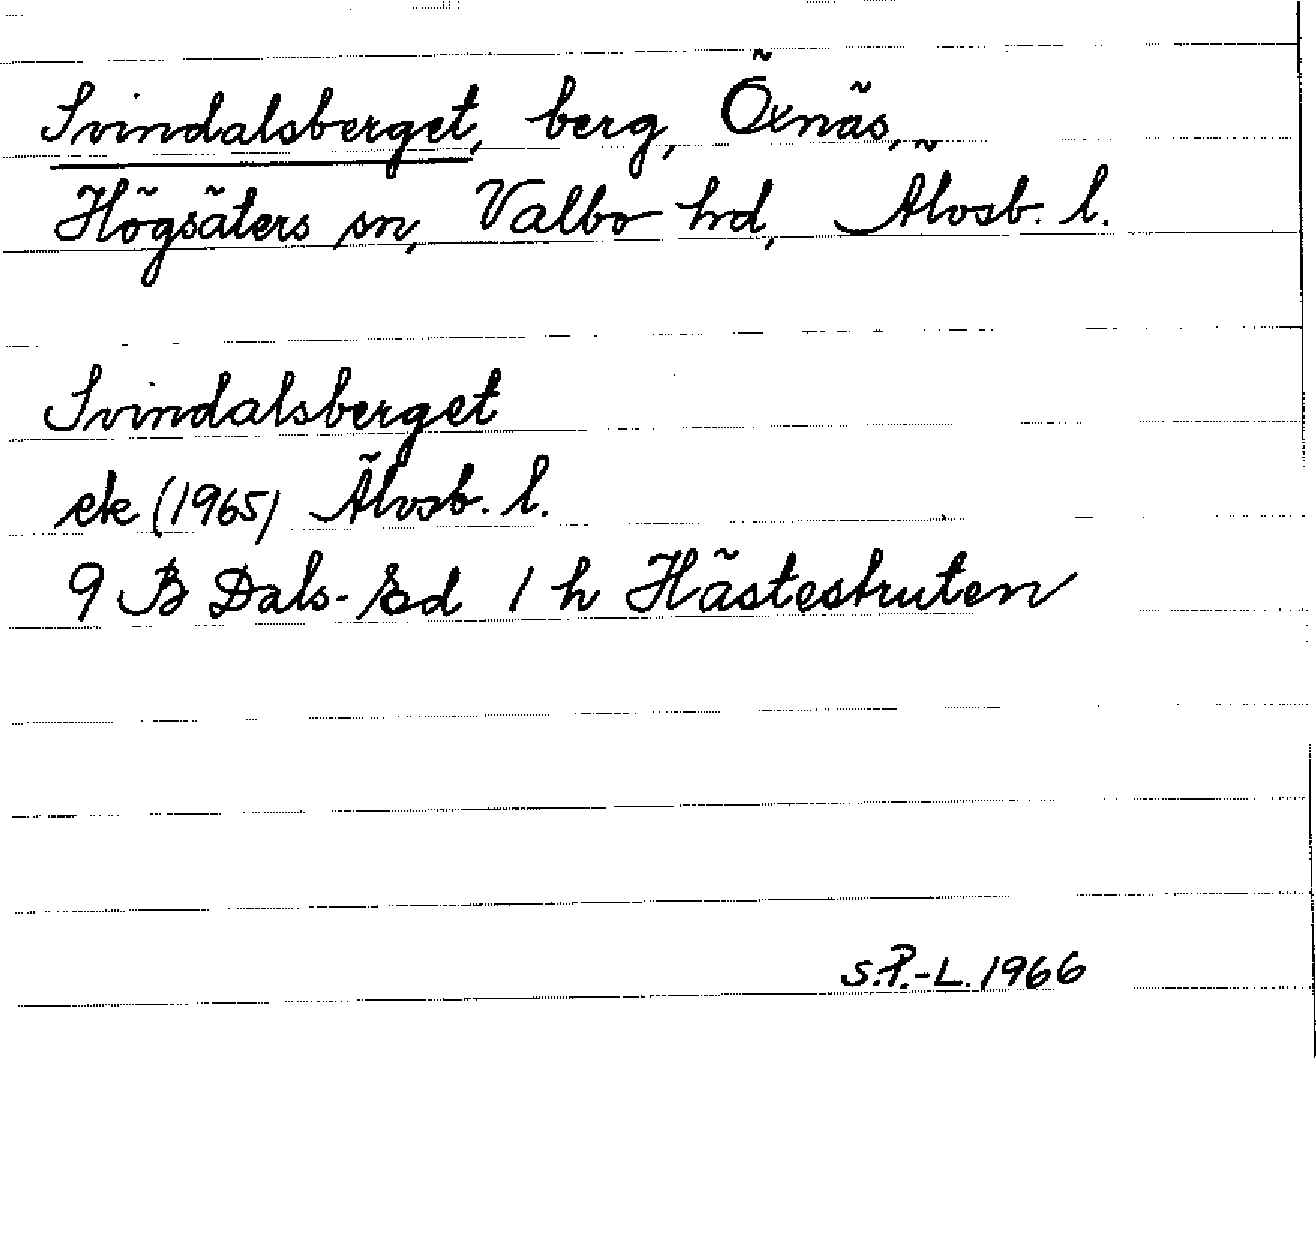 Svindalsberget, berg, Öxnäs,
Högsäters sn, Valbo hd, Älvsb. l.
Svindalsberget
ek (1965) Älvsb. l.
9 B Dals-Ed 1 h Hästestruten
S.P.-L. 1966